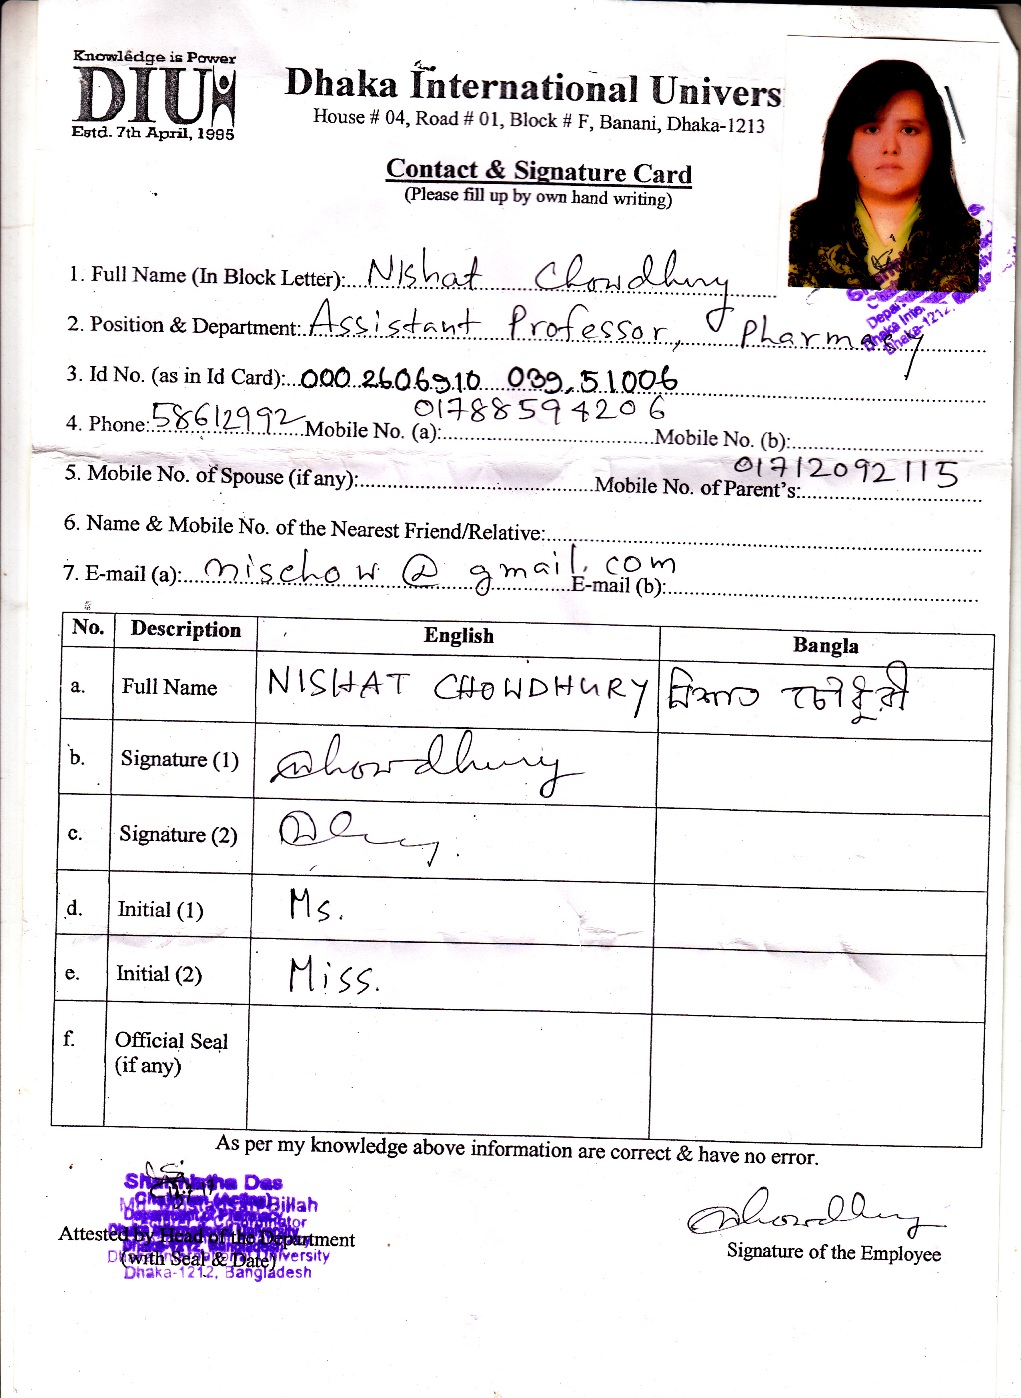 Knowledge is Power
DIU
Estd. 7th April, 1995
Dhaka International Univers
House # 04, Road # 01, Block # F, Banani, Dhaka-1213
Contact & Signature Card
(Please fill up by own hand writing)
1. Full Name (In Block Letter): Nishat Chowdhury
2. Position & Department: Assistant Professor, Pharmacy
3. Id No. (as in Id Card): 000 2606910 039, 51006
4. Phone: 58612992 Mobile No. (a): 01788594206 Mobile No. (b):
5. Mobile No. of Spouse (if any): Mobile No. of Parent's: 01712092115
6. Name & Mobile No. of the Nearest Friend/Relative:
7. E-mail (a): nischow@gmail.com E-mail (b):
No. Description English Bangla
a. Full Name NISHAT CHOWDHURY নিশাত চৌধুরী
b. Signature (1) Chowdhury
c. Signature (2)
d. Initial (1) Ms.
e. Initial (2) Miss.
f. Official Seal
(if any)
As per my knowledge above information are correct & have no error.
Attested by Head of the Department
(with Seal & Date)
Dhaka-1212, Bangladesh
Chowdhury
Signature of the Employee